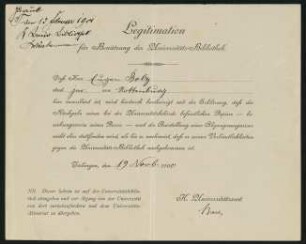 13. Januar 1901
Legitimation
für Benützung der Universitäts-Bibliothek.
Daß Herr Eugen Bolz
stud. jur. von Rottenburg
hier immatrikulirt ist, wird hiedurch bezeugt mit der Erklärung, daß die
Rückgabe eines bei der Universitätsbehörde befindlichen Papiers
und die Ausstellung eines Abgangszeugnisses
nicht eher stattfinden wird, als bis er nachweist, daß er seinen Verbindlichkeiten
gegen die Universitäts-Bibliothek nachgekommen ist.
Tübingen, den 19 Novb. 1900
NB. Dieser Schein ist auf der Universitätsbibliothek
abzugeben und vor Abgang von der Universität
von dort zurückzufordern und dem Universitäts-
Aktuariat zu übergeben.
K. Universitätsamt